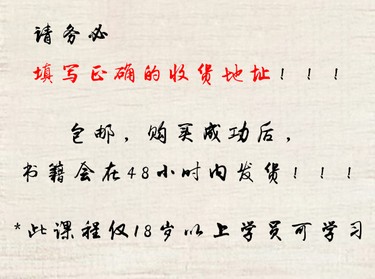 请务必
填写正确的收货地址!!!
包邮,购买成功后,
书籍会在48小时内发货!!!
*此课程仅18岁以上学员可学习